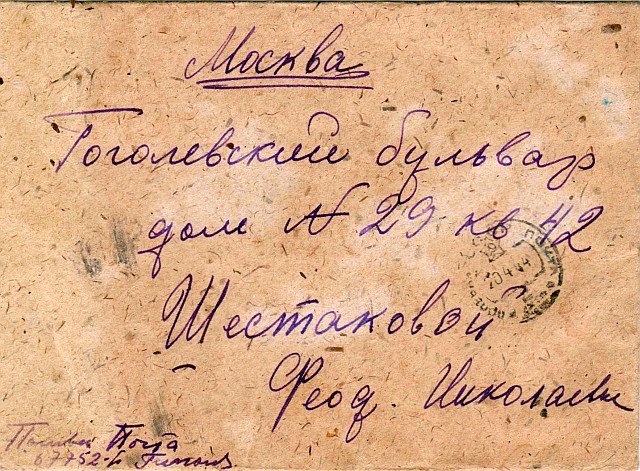 Москва
Гоголевский бульвар
дом № 29 кв 42
Шестаковой
Феод. Николаевн
Полевая Почта
67752-Б